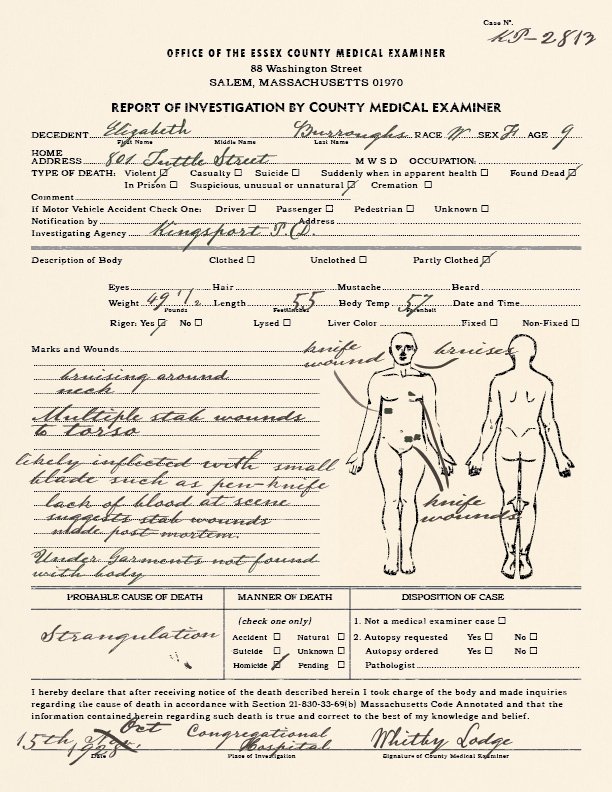 Case Nº.
KP-2813
OFFICE OF THE ESSEX COUNTY MEDICAL EXAMINER
88 Washington Street
SALEM, MASSACHUSETTS 01970
REPORT OF INVESTIGATION BY COUNTY MEDICAL EXAMINER
DECEDENT Elizabeth Burroughs RACE W SEX F AGE 9
First Name Middle Name Last Name
HOME ADDRESS 801 Tuttle Street M W S D OCCUPATION:
TYPE OF DEATH: Violent ☑ Casualty ☐ Suicide ☐ Suddenly when in apparent health ☐ Found Dead ☑
In Prison ☐ Suspicious, unusual or unnatural ☑ Cremation ☐
Comment
If Motor Vehicle Accident Check One: Driver ☐ Passenger ☐ Pedestrian ☐ Unknown ☐
Notification by Address
Investigating Agency Kingsport P.D.
Description of Body Clothed ☐ Unclothed ☐ Partly Clothed ☑
Eyes Hair Mustache Beard
Weight 49 1/2 Length 55 Body Temp 57 Date and Time
Pounds Feet/Inches
Rigor: Yes ☑ No ☐ Lysed ☐ Liver Color Fixed ☐ Non-Fixed ☐
Marks and Wounds
knife wound
bruises
bruising around
neck
Multiple stab wounds
to torso
likely inflicted with small
blade such as pen-knife
lack of blood at scene
suggests stab wounds
made post mortem.
Under Garments not found
with body
knife
wounds
PROBABLE CAUSE OF DEATH MANNER OF DEATH DISPOSITION OF CASE
Strangulation
(check one only)
Accident ☐ Natural ☐
Suicide ☐ Unknown ☐
Homicide ☑ Pending ☐
1. Not a medical examiner case ☐
2. Autopsy requested Yes ☐ No ☐
Autopsy ordered Yes ☐ No ☐
Pathologist
I hereby declare that after receiving notice of the death described herein I took charge of the body and made inquiries
regarding the cause of death in accordance with Section 21-830-33-69(b) Massachusetts Code Annotated and that the
information contained herein regarding such death is true and correct to the best of my knowledge and belief.
15th Oct 1928 Congregational Hospital Whitby Lodge
Date Place of Investigation Signature of County Medical Examiner